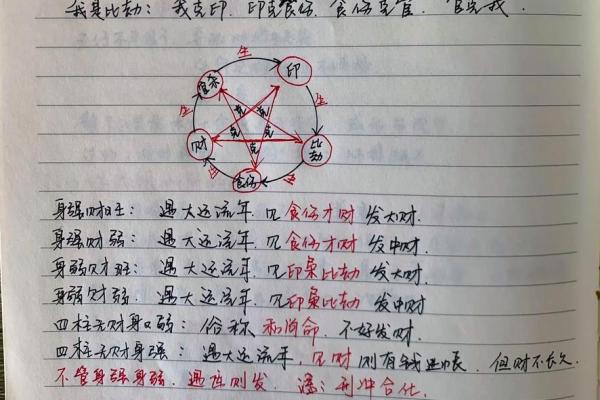 我是比劫：我克印．印克食伤．食伤克官．官克我．
生
官杀
印
生
克
克
生
克
克
财
比劫
克
生
食伤
生
身强财旺：遇大运流年．见食伤才财发大财．
身强财弱：遇大运流年．见食伤才财发中财．
身弱财旺：遇大运流年．见印枭比劫发大财．
身弱财弱．遇大运流年．见印枭比劫发中财
四柱无财身又弱：俗称和尚命．不好发财．
四柱无财身强：遇大运流年，见财则有钱进帐．但财不长久．
不管身强身弱．遇连则发．注：刑冲合化．